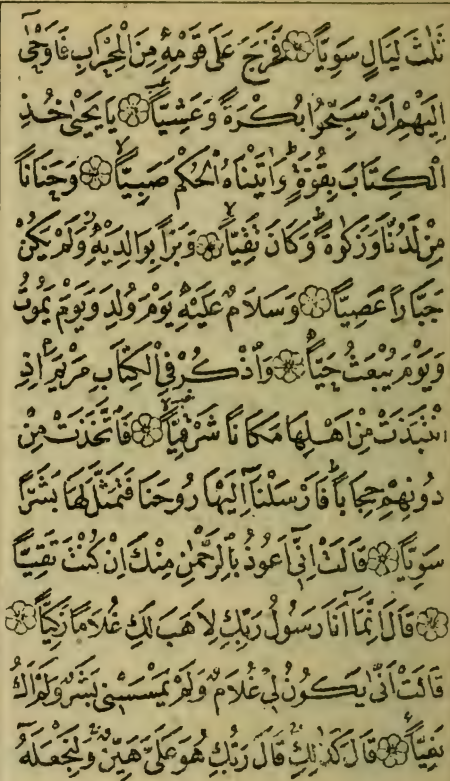 ثَلٰثَ لَيَالٍ سَوِيّاً ۝ فَخَرَجَ عَلٰى قَوْمِهٖ مِنَ الْمِحْرَابِ فَاَوْحٰٓى
اِلَيْهِمْ اَنْ سَبِّحُوا بُكْرَةً وَعَشِيّاً ۝ يَا يَحْيٰى خُذِ
الْكِتَابَ بِقُوَّةٍ وَاٰتَيْنَاهُ الْحُكْمَ صَبِيّاً ۝ وَحَنَاناً
مِنْ لَدُنَّا وَزَكٰوةً وَكَانَ تَقِيّاً ۝ وَبَرّاً بِوَالِدَيْهِ وَلَمْ يَكُنْ
جَبَّاراً عَصِيّاً ۝ وَسَلَامٌ عَلَيْهِ يَوْمَ وُلِدَ وَيَوْمَ يَمُوتُ
وَيَوْمَ يُبْعَثُ حَيّاً ۝ وَاذْكُرْ فِي الْكِتَابِ مَرْيَمَ اِذِ
انْتَبَذَتْ مِنْ اَهْلِهَا مَكَاناً شَرْقِيّاً ۝ فَاتَّخَذَتْ مِنْ
دُونِهِمْ حِجَاباً فَاَرْسَلْنَٓا اِلَيْهَا رُوحَنَا فَتَمَثَّلَ لَهَا بَشَراً
سَوِيّاً ۝ قَالَتْ اِنّٓى اَعُوذُ بِالرَّحْمٰنِ مِنْكَ اِنْ كُنْتَ تَقِيّاً
۝ قَالَ اِنَّمَٓا اَنَا رَسُولُ رَبِّكِ لِاَهَبَ لَكِ غُلَاماً زَكِيّاً ۝
قَالَتْ اَنّٰى يَكُونُ لِى غُلَامٌ وَلَمْ يَمْسَسْنِى بَشَرٌ وَلَمْ اَكُ
بَغِيّاً ۝ قَالَ كَذٰلِكِ قَالَ رَبُّكِ هُوَ عَلَىَّ هَيِّنٌ وَلِنَجْعَلَهُٓ